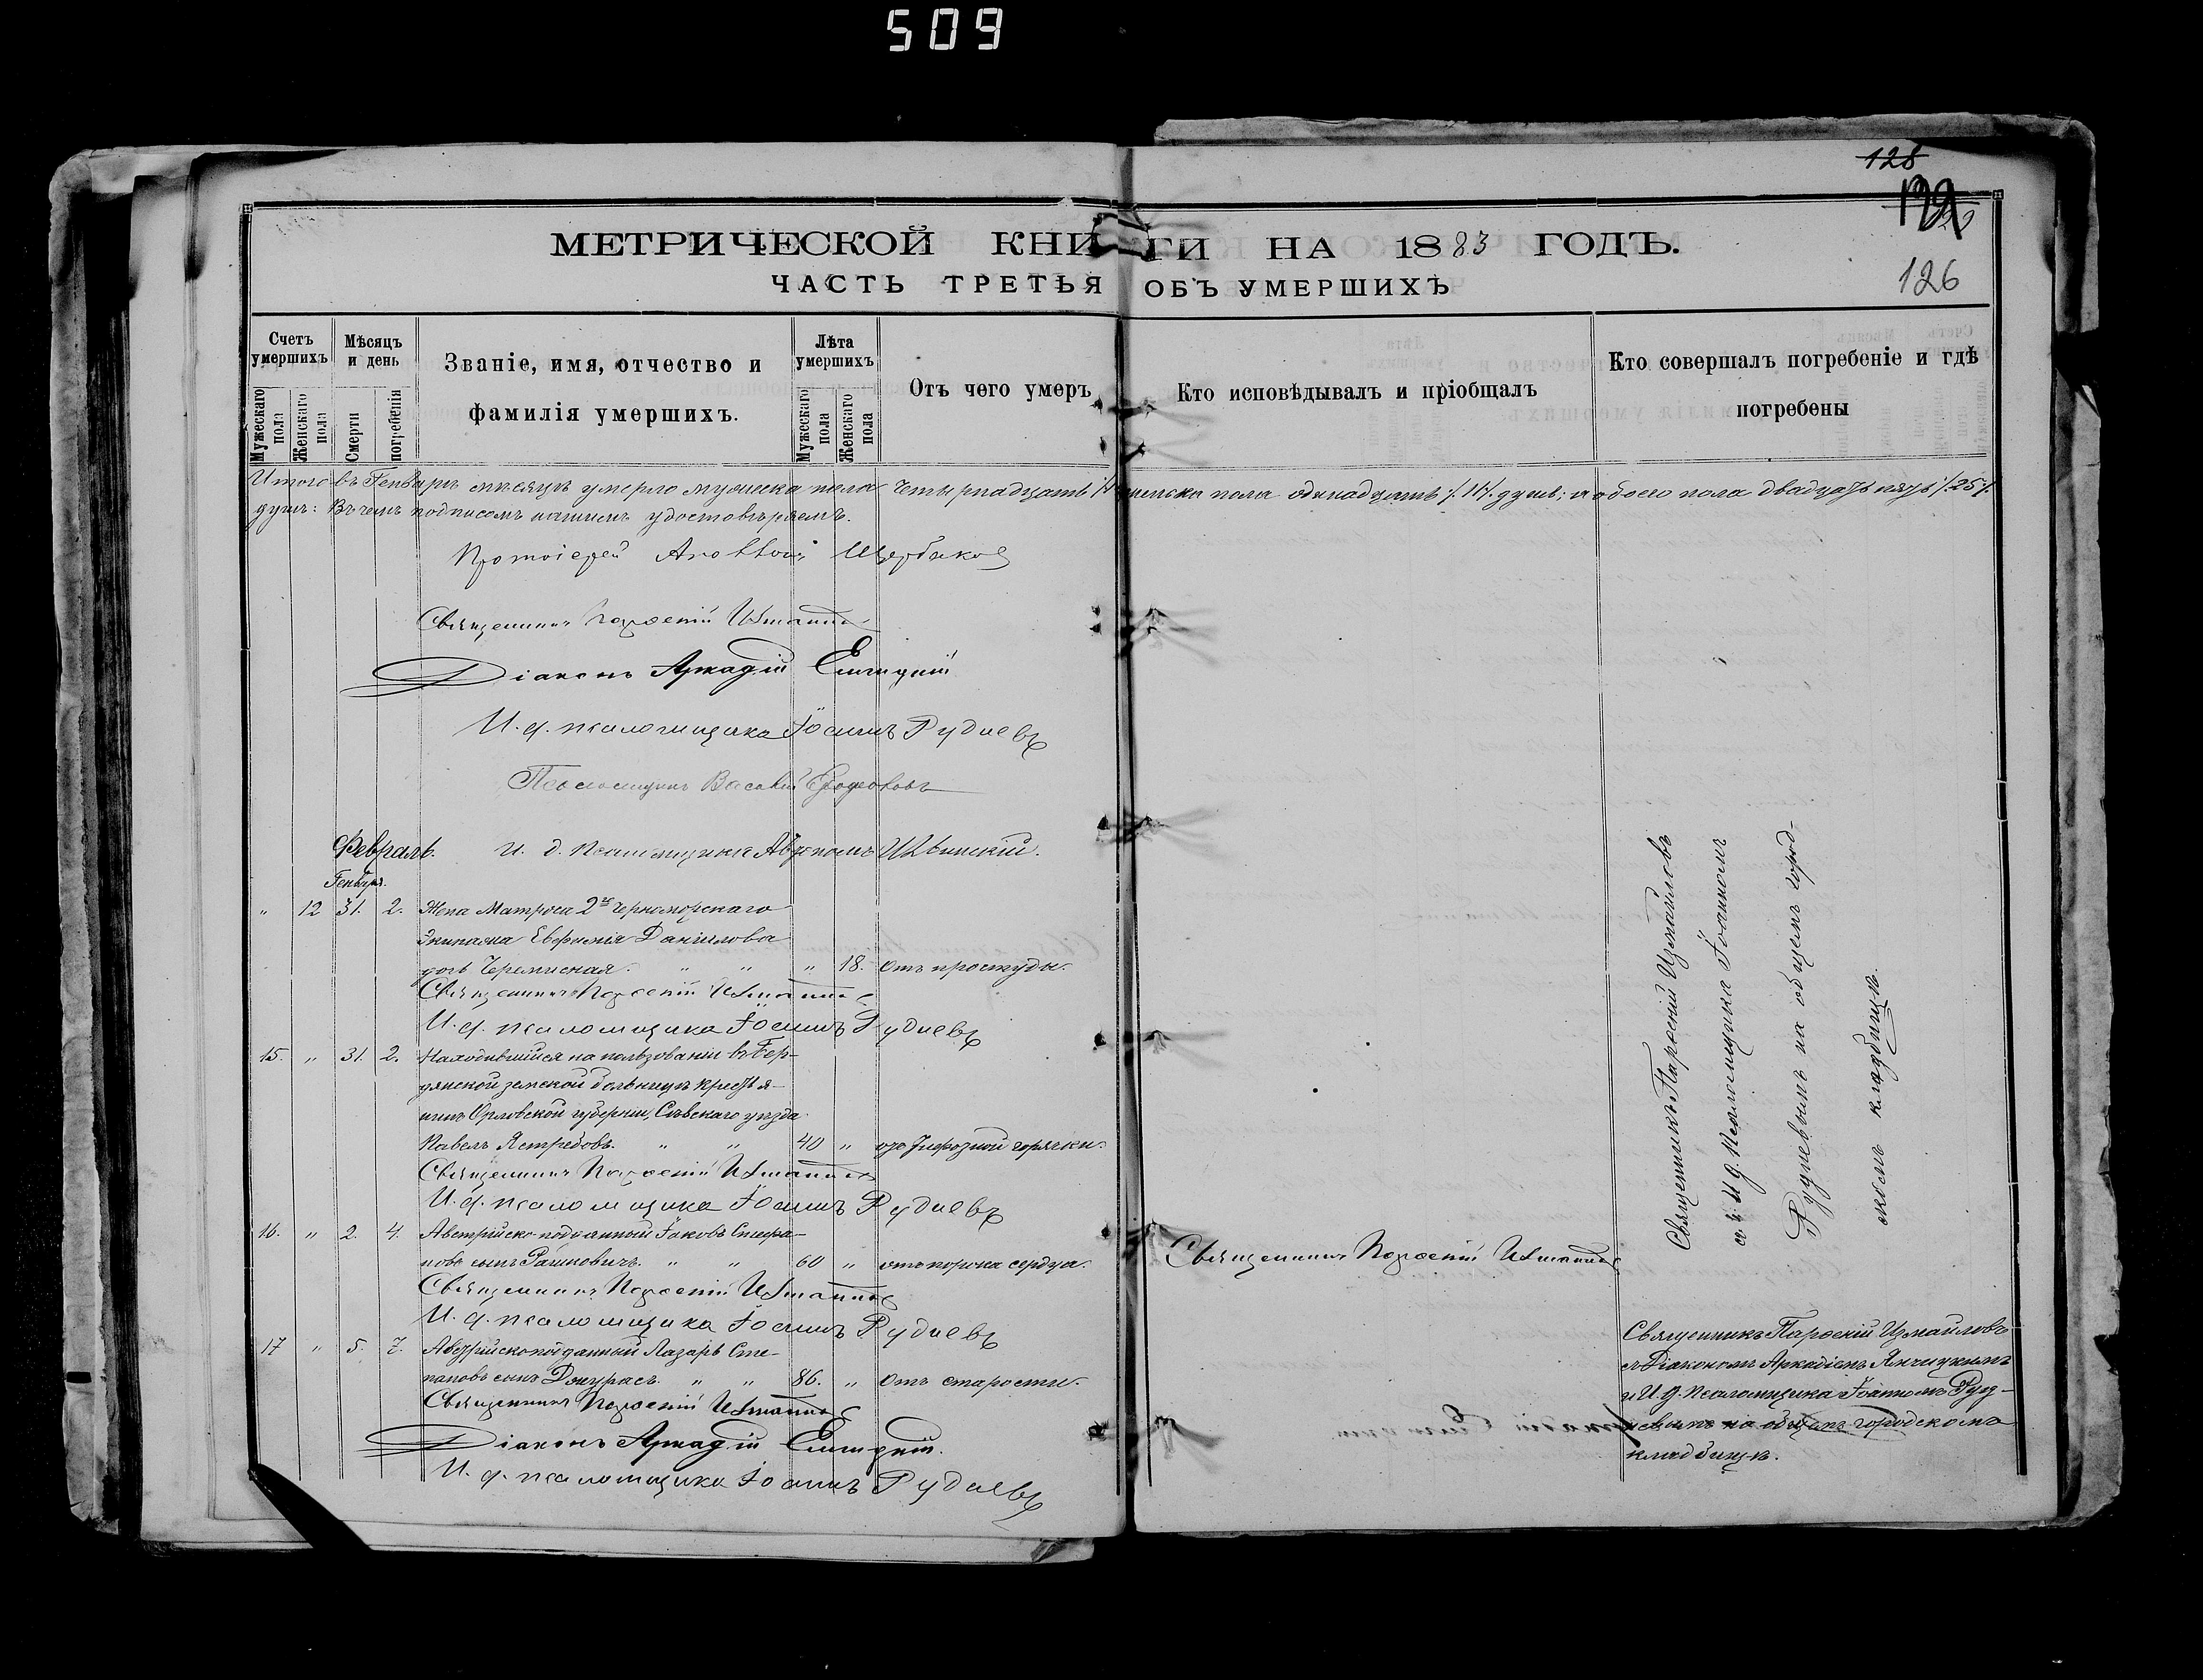 509
128
126
МЕТРИЧЕСКОЙ КНИГИ НА 1883 ГОДЪ.
ЧАСТЬ ТРЕТЬЯ ОБЪ УМЕРШИХЪ
Счетъ умершихъ
Мужескаго пола
Женскаго пола
Мѣсяцъ и день
Смерти
погребенія
Званіе, имя, отчество и
фамилія умершихъ.
Лѣта умершихъ
Мужескаго пола
Женскаго пола
Отъ чего умеръ
Кто исповѣдывалъ и пріобщалъ
Кто совершалъ погребеніе и гдѣ
погребены
Итого въ Генварѣ мѣсяцѣ умерло мужеска пола четырнадцать женска пола одинадцать /11/ душъ; а обоего пола двадцать пять /25/
душъ: Въ чемъ подписомъ нашимъ удостовѣряемъ.
Протоіерей Щербаковъ
Священникъ Парѳеній Измаиловъ
Діаконъ Аркадій
И. д. псаломщика Іоаннъ Рудневъ
Псаломщикъ Василій
Февраль. И. д. Псаломщика
Генваря.
" 12 31. 2. Жена Матроса 2го Черноморскаго
Экипажа Евфимія Данилова
дочь Черемисная. " " " 18. Отъ простуды.
Священникъ Парѳеній Измаиловъ
И. д. псаломщика Іоаннъ Рудневъ
15. " 31. 2. Находившійся на пользованіи въ Бер-
дянской земской больницѣ крестья-
нинъ Орловской губерніи, Сѣвскаго уѣзда
Павелъ Ястребовъ. " " 40 " отъ тифозной горячки.
Священникъ Парѳеній Измаиловъ
И. д. псаломщика Іоаннъ Рудневъ
16. " 2. 4. Австрійско-подданный Іаковъ Стефа-
новъ сынъ Рашковичъ. " " 60 " отъ порока сердца.
Священникъ Парѳеній Измаиловъ
Священникъ Парѳеній Измаиловъ
И. д. псаломщика Іоаннъ Рудневъ
17 " 5. 7. Австрійскоподданный Лазарь Сте-
пановъ сынъ Джурасъ. " " 86. " Отъ старости.
Священникъ Парѳеній Измаиловъ
Діаконъ Аркадій
И. д. псаломщика Іоаннъ Рудневъ
Священникъ Парѳеній Измаиловъ
съ И. д. Псаломщика Іоанномъ
Рудневымъ на общемъ город-
скомъ кладбищѣ.
Священникъ Парѳеній Измаиловъ
съ Діакономъ Аркадіемъ
и И. д. Псаломщика Іоанномъ Руд-
невымъ на общемъ городскомъ
кладбищѣ.